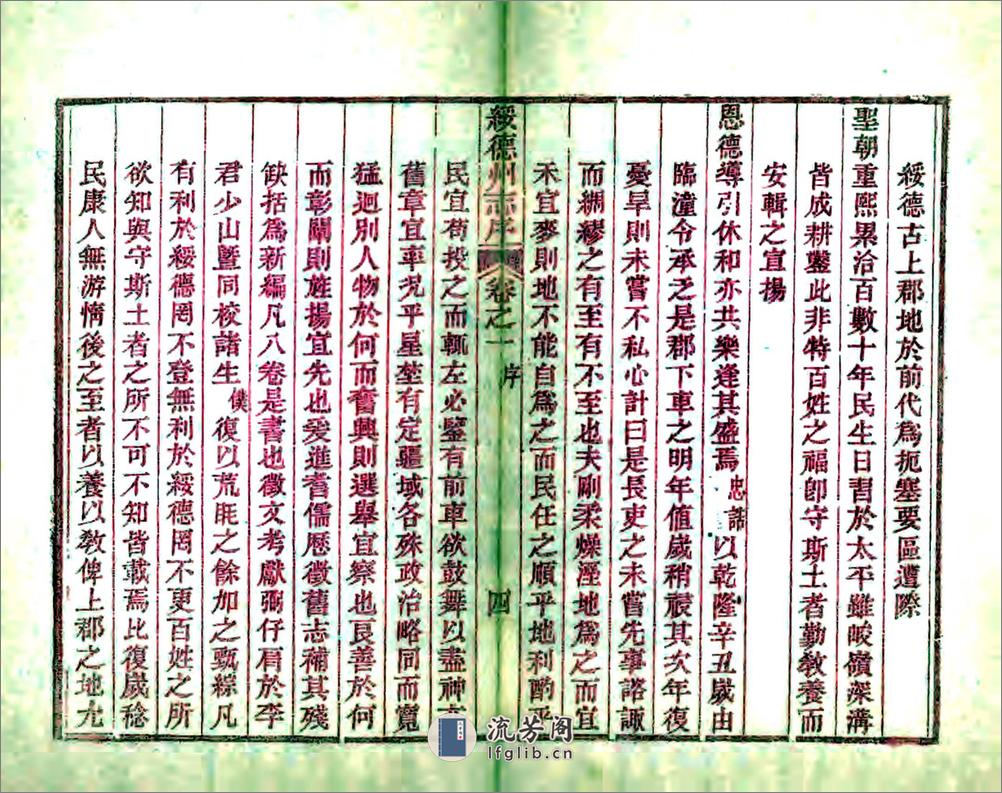 綏德古上郡地於前代爲扼塞要區遭際
聖朝重熙累洽百數十年民生日習於太平雖峻嶺深溝
皆成耕鑿此非特百姓之福卽守斯土者勤敎養而
安輯之宣揚
恩德導引休和亦共樂逢其盛焉忠誥以乾隆辛丑歲由
臨潼令承乏是郡下車之明年值歲稍祲其次年復
憂旱則未嘗不私心計曰是長吏之未嘗先事諮諏
而綢繆之有至有不至也夫剛柔燥溼地爲之而宜
禾宜麥則地不能自爲之而民任之順乎地利酌乎
綏德州志序 卷之一 序 四
民宜苟投之而輒左必鑒有前車欲鼓舞以盡神
舊章宜率況乎星埜有定疆域各殊政治略同而寬
猛迥別人物於何而奮興則選舉宜察也艮善於何
而彰闡則旌揚宜先也爰進耆儒歷徵舊志補其殘
缺括爲新編凡八卷是書也徵文考獻弼仔肩於李
君少山暨同校諸生僕復以荒眊之餘加之甄綜凡
有利於綏德罔不登無利於綏德罔不更百姓之所
欲知與守斯土者之所不可不知皆載焉比復歲稔
民康人無游惰後之至者以養以敎俾上郡之地尤
流芳阁
lfglib.cn